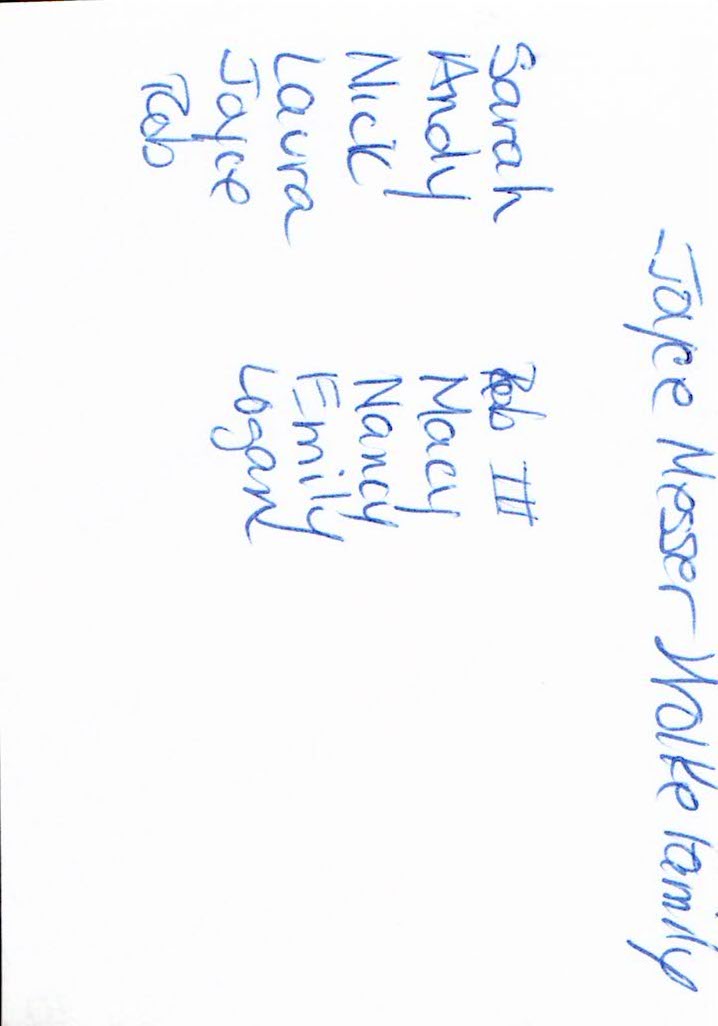 -Joyce Messer Wolke family
Sarah
Andy
Nick
Laura
Joyce
Rob
Rob III
Macy
Nancy
Emily
Logan